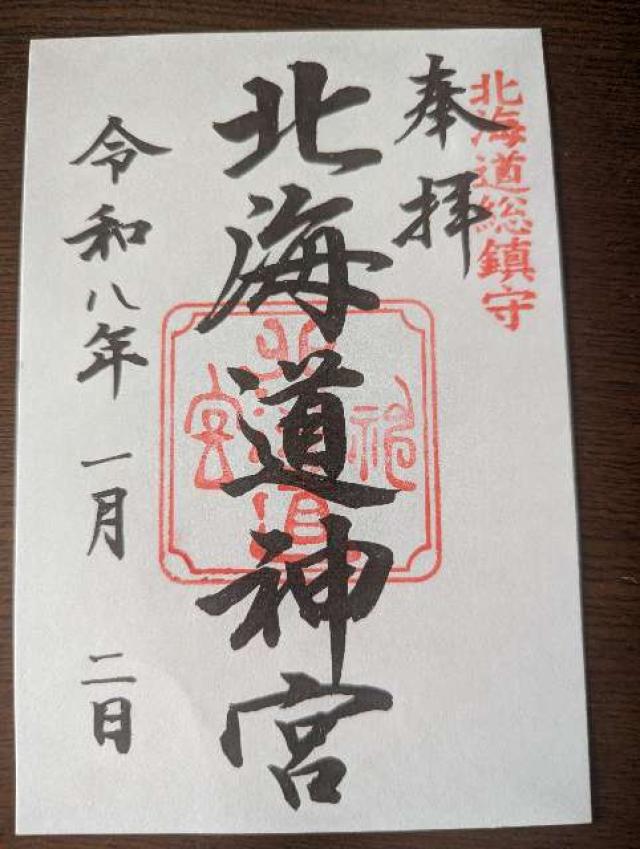 北海道総鎮守
奉拝
北海道神宮
令和八年 一月 二日
北海道神宮